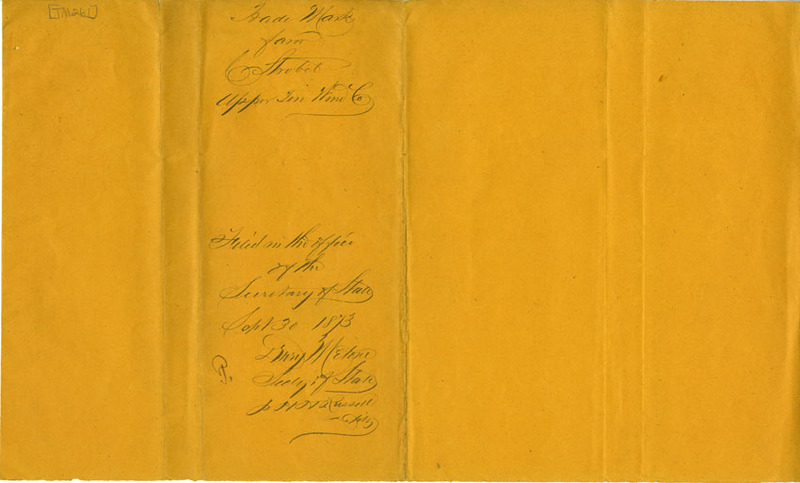 [TM261]
Trade Mark
for
C Strobel
Upper Ten Wine Co
Filed in the office
of the
Secretary of State
Sept 30 1873
Drury Melone
Secty of State
Russell
Dpty
P.